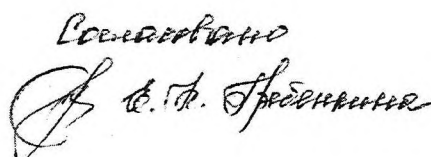 Согласовано
Е. Н. Гребенкина